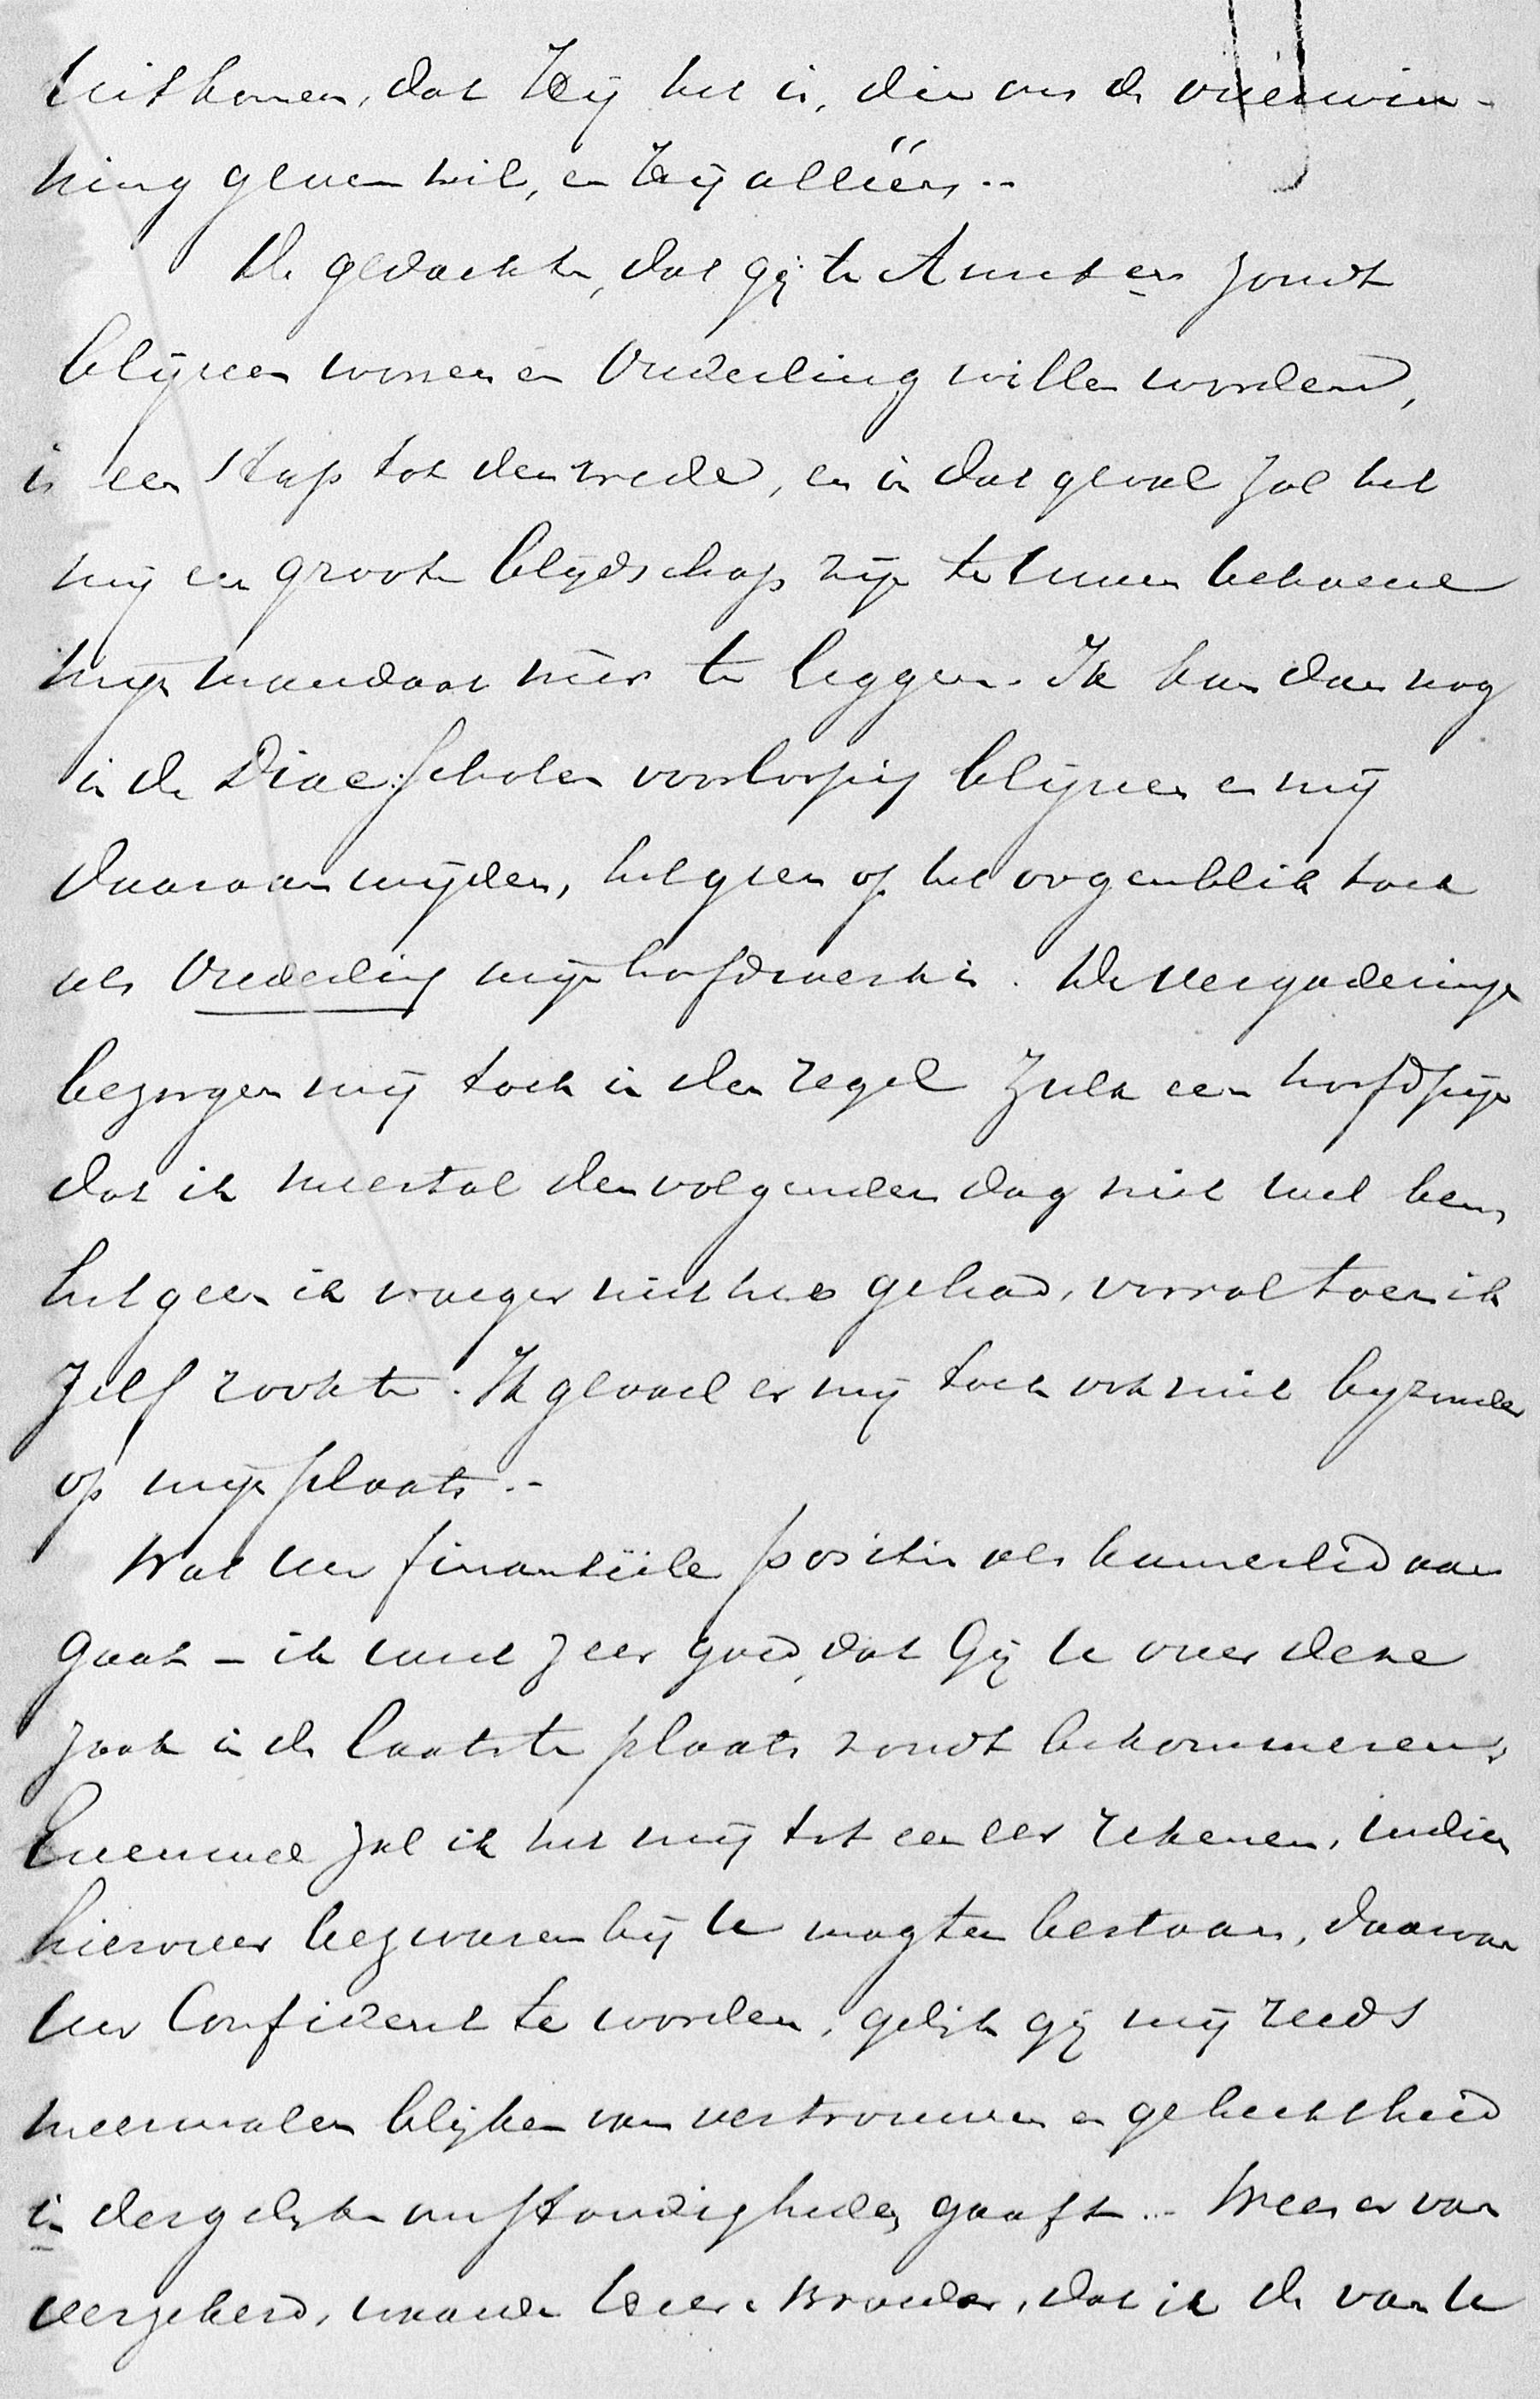 uitkomen, dat Hij het is, die ons de overwin-
ning geven wil, en Hij alléén..-
De gedachte, dat gij te Amst en zoudt
blijven wonen en Ouderling willen worden,
is een stap tot den vrede, en in dat geval zal het
mij een groote blijdschap zijn te Uwen behoeve
mijn mandaat neer te leggen. Ik kan dan nog
in de Diac. Scholen voorloopig blijven en mij
daaraan wijden, hetgeen op het oogenblik toch
als Ouderling mijn hoofdwerk is. De vergaderingen
bezorgen mij toch in den regel zulk een hoofdpijn
dat ik meestal den volgenden dag niet wel ben,
hetgeen ik vroeger niet heb gehad, vooral toen ik
zelf rookte. Ik gevoel er mij toch ook niet byzonder
op mijn plaats.-
Wat uw finantiëele positie als kamerlid aan
gaat - ik weet zeer goed, dat Gij U over deze
zaak in de laatste plaats zoudt bekommeren,
Evenwel zal ik het mij tot een eer rekenen, indien
hierover bezwaren bij U mogten bestaan, daarvan
Uw Confident te worden, gelijk gij mij reeds
meermalen blijken van vertrouwen en gehechtheid
in dergelijke omstandigheden gaaft..- Wees er van
verzekerd, waarde Heer & Broeder, dat ik de van U